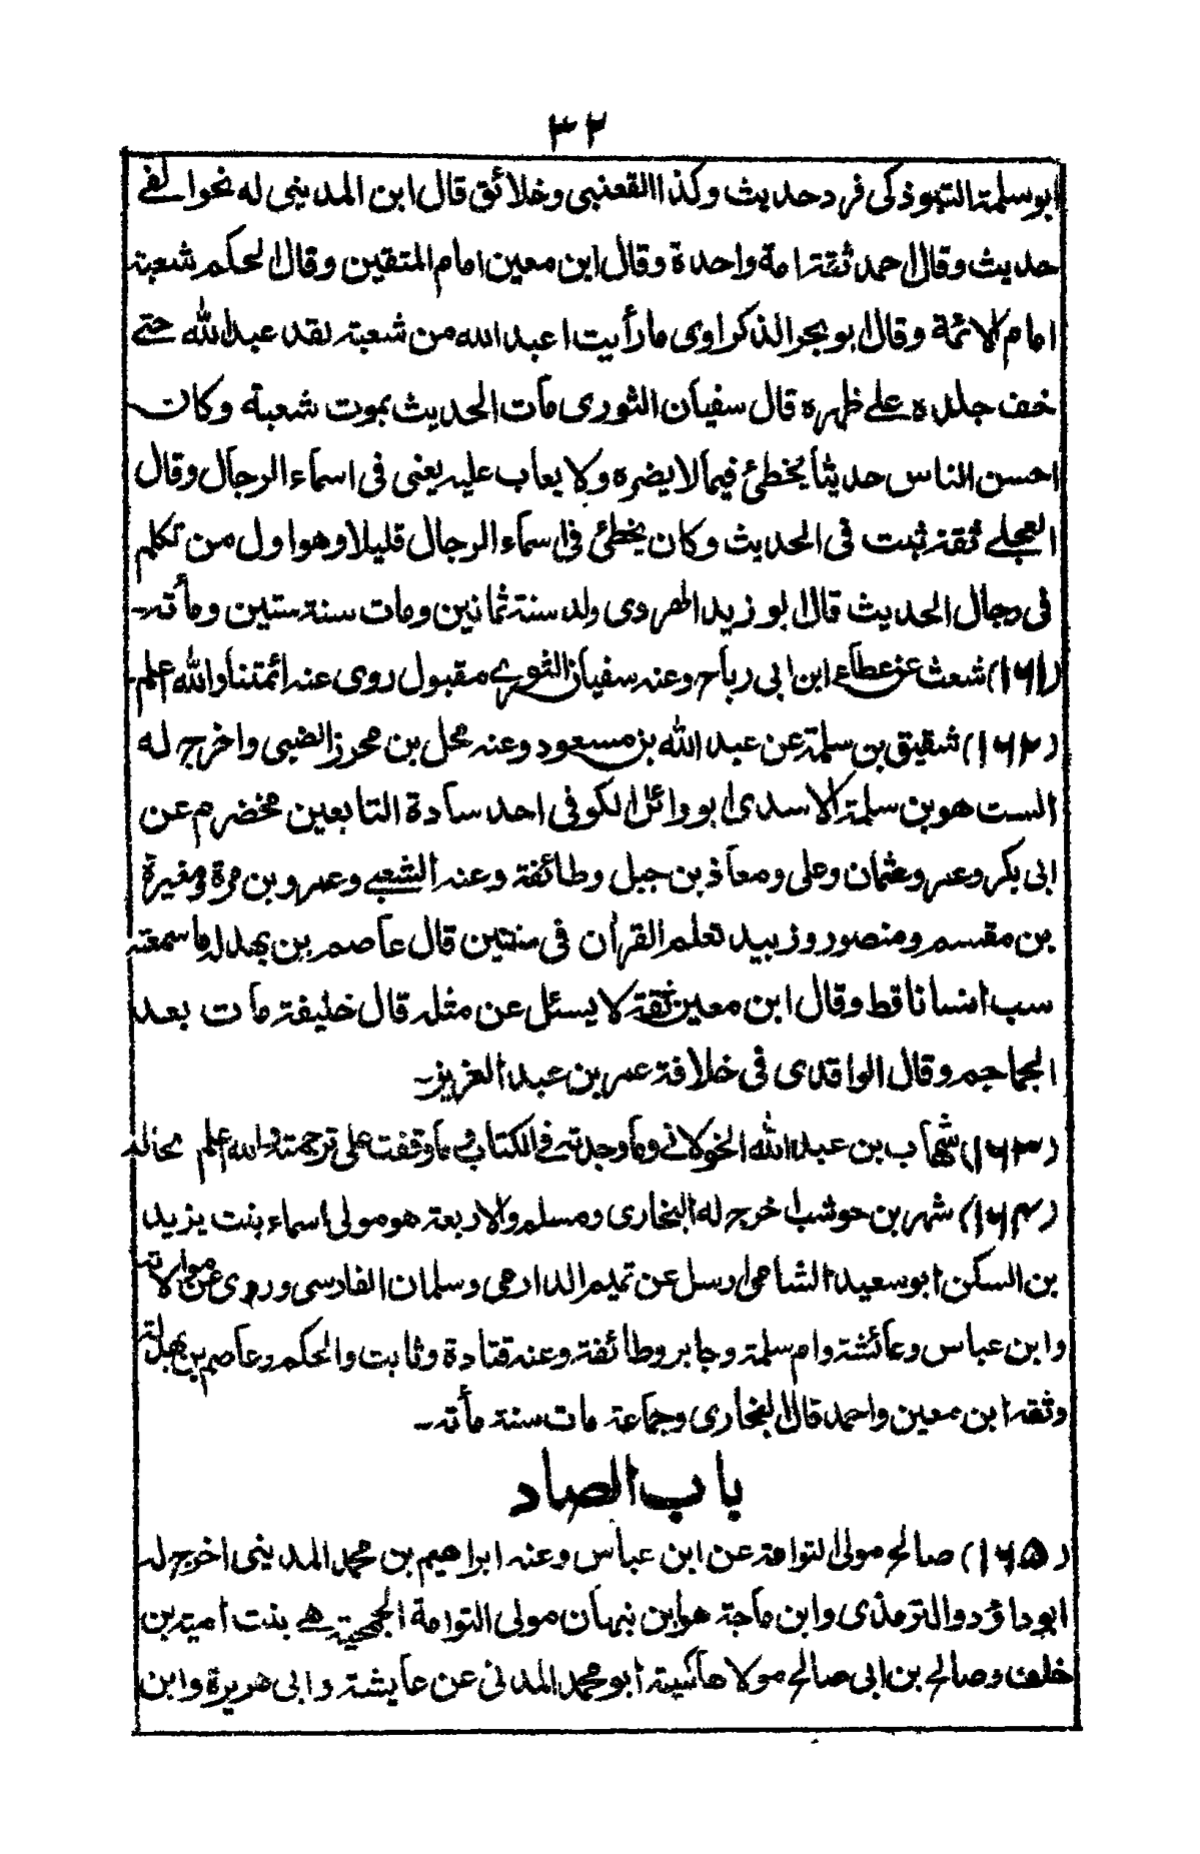 ٣٢
ابو سلمة التبوذكى فرد حديث وكذا القعنبى وخلائق قال ابن المدينى له نحو الفے
حديث وقال احمد ثقة امة واحدة وقال ابن معين امام المتقين وقال الحكم شعبة
امام الائمة وقال ابو بحر الذكراوى ما رأيت اعبد الله من شعبة لقد عبد الله حتے
خف جلده علے ظهره قال سفيان الثورى مات الحديث بموت شعبة وكان
احسن الناس حديثا يخطئ فيما لا يضره ولا يعاب عليه يعنى فى اسماء الرجال وقال
العجلے ثقة ثبت فى الحديث وكان يخطئ فى اسماء الرجال قليلا وهو اول من تكلم
فى رجال الحديث قال ابو زيد الهروى ولد سنة ثمانين ومات سنة ستين ومأته۔
(١٦١) شعث عن عطاء ابن ابى رباح وعنه سفيان الثورے مقبول روى عنه ائمتنا والله اعلم۔
(١٦٢) شقيق بن سلمة عن عبد الله بن مسعود وعنه محل بن محرز الضبى واخرج له
الست هو بن سلمة الاسدى ابو وائل الكوفى احد سادة التابعين مخضرم عن
ابى بكر وعمر وعثمان وعلى ومعاذ بن جبل وطائفة وعنه الشعبے وعمرو بن مرة ومغيرة
بن مقسم ومنصور وزبيد تعلم القرأن فى سنتين قال عاصم بن بهدلة ما سمعته
سب انسانا قط وقال ابن معين ثقة لا يسئل عن مثله قال خليفة مات بعد
الجماجم وقال الواقدى فى خلافة عمر بن عبد العزيز۔
(١٦٣) شهاب بن عبد الله الخولانے وما وجدته فے الكتاب وما وقفت على ترجمته والله اعلم بحاله
(١٦٤) شهر بن حوشب اخرج له البخارى ومسلم والاربعة هو مولى اسماء بنت يزيد
بن السكن ابو سعيد الشامى ارسل عن تميم الدارمى وسلمان الفارسى وروى عن مولاته
وابن عباس وعائشة وام سلمة وجابر وطائفة وعنه قتادة وثابت والحكم وعاصم بن بهدلة
وثقه ابن معين واحمد قال البخارى وجماعة مات سنة مأته۔
باب الصاد
(١٦٥) صالح مولى التوامة عن ابن عباس وعنه ابراهيم بن محمد المدينى اخرج له
ابو داؤد والترمذى وابن ماجة هو ابن نبهان مولى التوامة الجمحية هے بنت امية بن
خلف وصالح بن ابى صالح مولاها كنية ابو محمد المدنى عن عايشة وابى هريرة وابن